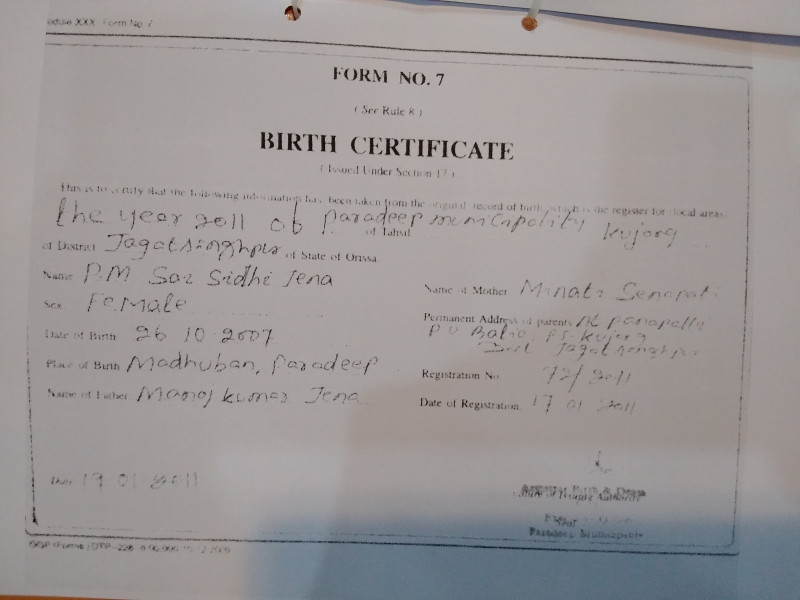 Form No. 7
FORM NO. 7
( See Rule 8 )
BIRTH CERTIFICATE
( Issued Under Section 17 )
This is to certify that the following information has been taken from the original record of birth which is the register for local areas
the year 2011 of paradeep municipality
of Tahsil kujang
of District Jagatsinghpur of State of Orissa.
Name P.M Sai Sidhi Jena
Name of Mother Minati Senapati
Sex Fe.Male
Permanent Address of parents
Date of Birth 26 10 2007
PS kujang
Dist Jagatsinghpur
Place of Birth Madhuban, paradeep
Registration No 72/2011
Name of Father Manoj kumar Jena
Date of Registration 17 01 2011
Date 19 01 2011
Paradeep Municipality